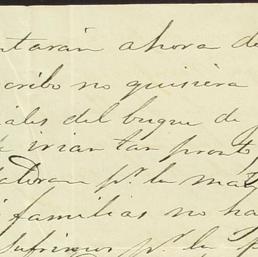 ntarán ahora de
scribo no quisiera
iales del buque de
e irian tan pronto
p.r la
familias no ha
sufrimos p.r la